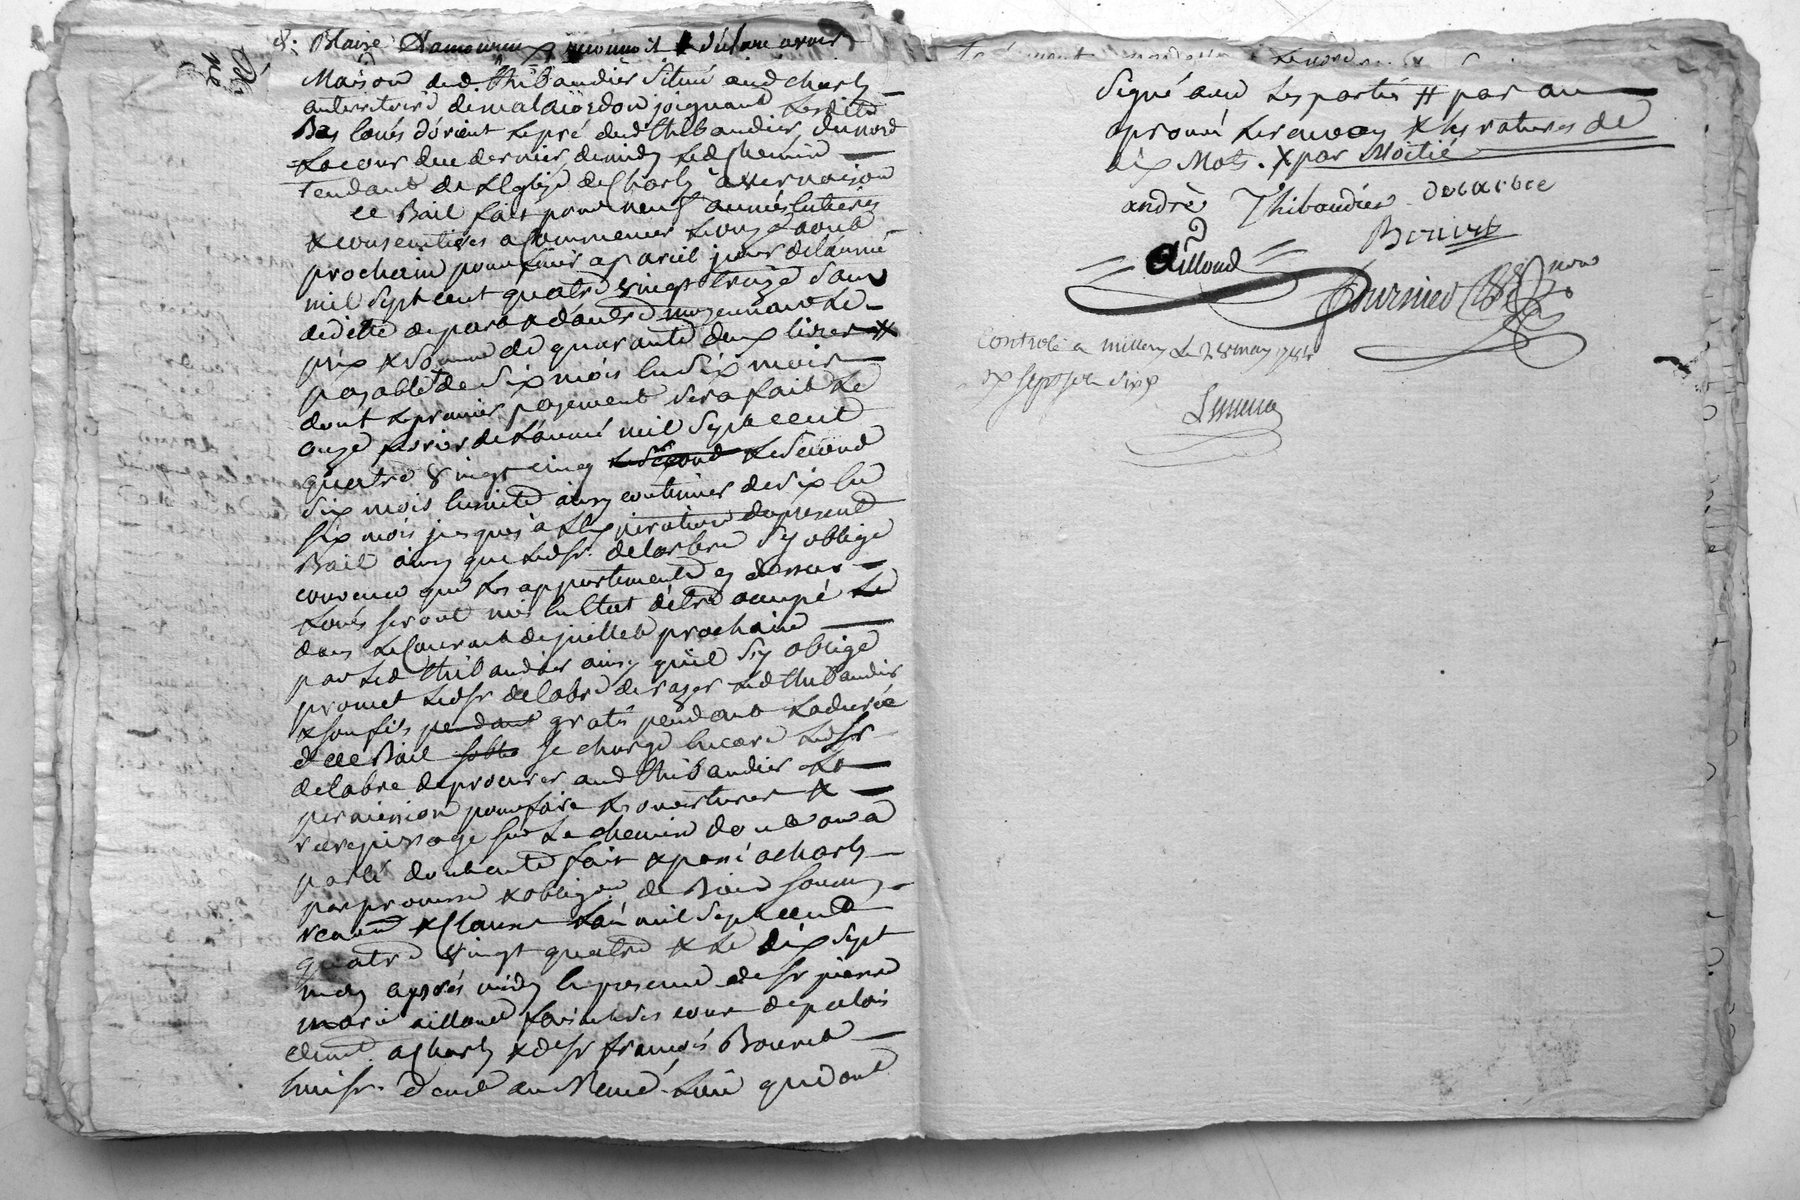 Maison dud. thibaudier situé aud charly
au territoire de malaiordon joignant lesdits
Bas loués d'orient le pré dud thibaudier, du nord
la cour de ce dernier de midy led chemin
tendant de l'Eglise de Charly a vernaison
ce Bail fait pour neuf années entieres
& consecutives a commencer le onze aoust
prochain pour finir a pareil jour de l'année
mil sept cent quatre vingt treize sans
deditte de part & d'autre moyennant le
prix & somme de quarante deux livres #
payable de six mois en six mois
dont le premier payement sera fait le
onze fevrier de l'année mil sept cent
quatre vingt cinq le second le second
six mois ensuite ainsy continuer de six en
six mois jusques à l'expiration du present
Bail ainsy que ledsr. delarbre s'y oblige
convenu que les appartements cy dessus
loués seront mis en etat d'être occupé le
dans le courant de juillet prochain
par led thibaudier ainsy qu'il s'y oblige
promet ledsr delabre de razer led thibaudier
& son fils pendant gratis pendant la durée
de ce Bail se charge encore ledsr
delabre de procurer aud thibaudier la
permission pour faire les ouvertures &
recrepissage sur le chemin dont on a
parlé dont acte fait & passé a charly
par promesse & obligon de Biens soumis
renon & clauses l'an mil sept cent
quatre vingt quatre & le dix sept
may après midy en presence de sr pierre
marie ailloud
a Charly & de sr françois Bonnet
huissr. aud même lieu qui ont
signé avec les parties # par an
aprouvé les renvoy & les ratures de
dix Mots. X par Moitié
andrè Thibaudier delarbre
Bonnet
ailloud
fournier nore
Controlé a millery le 28 may 1784